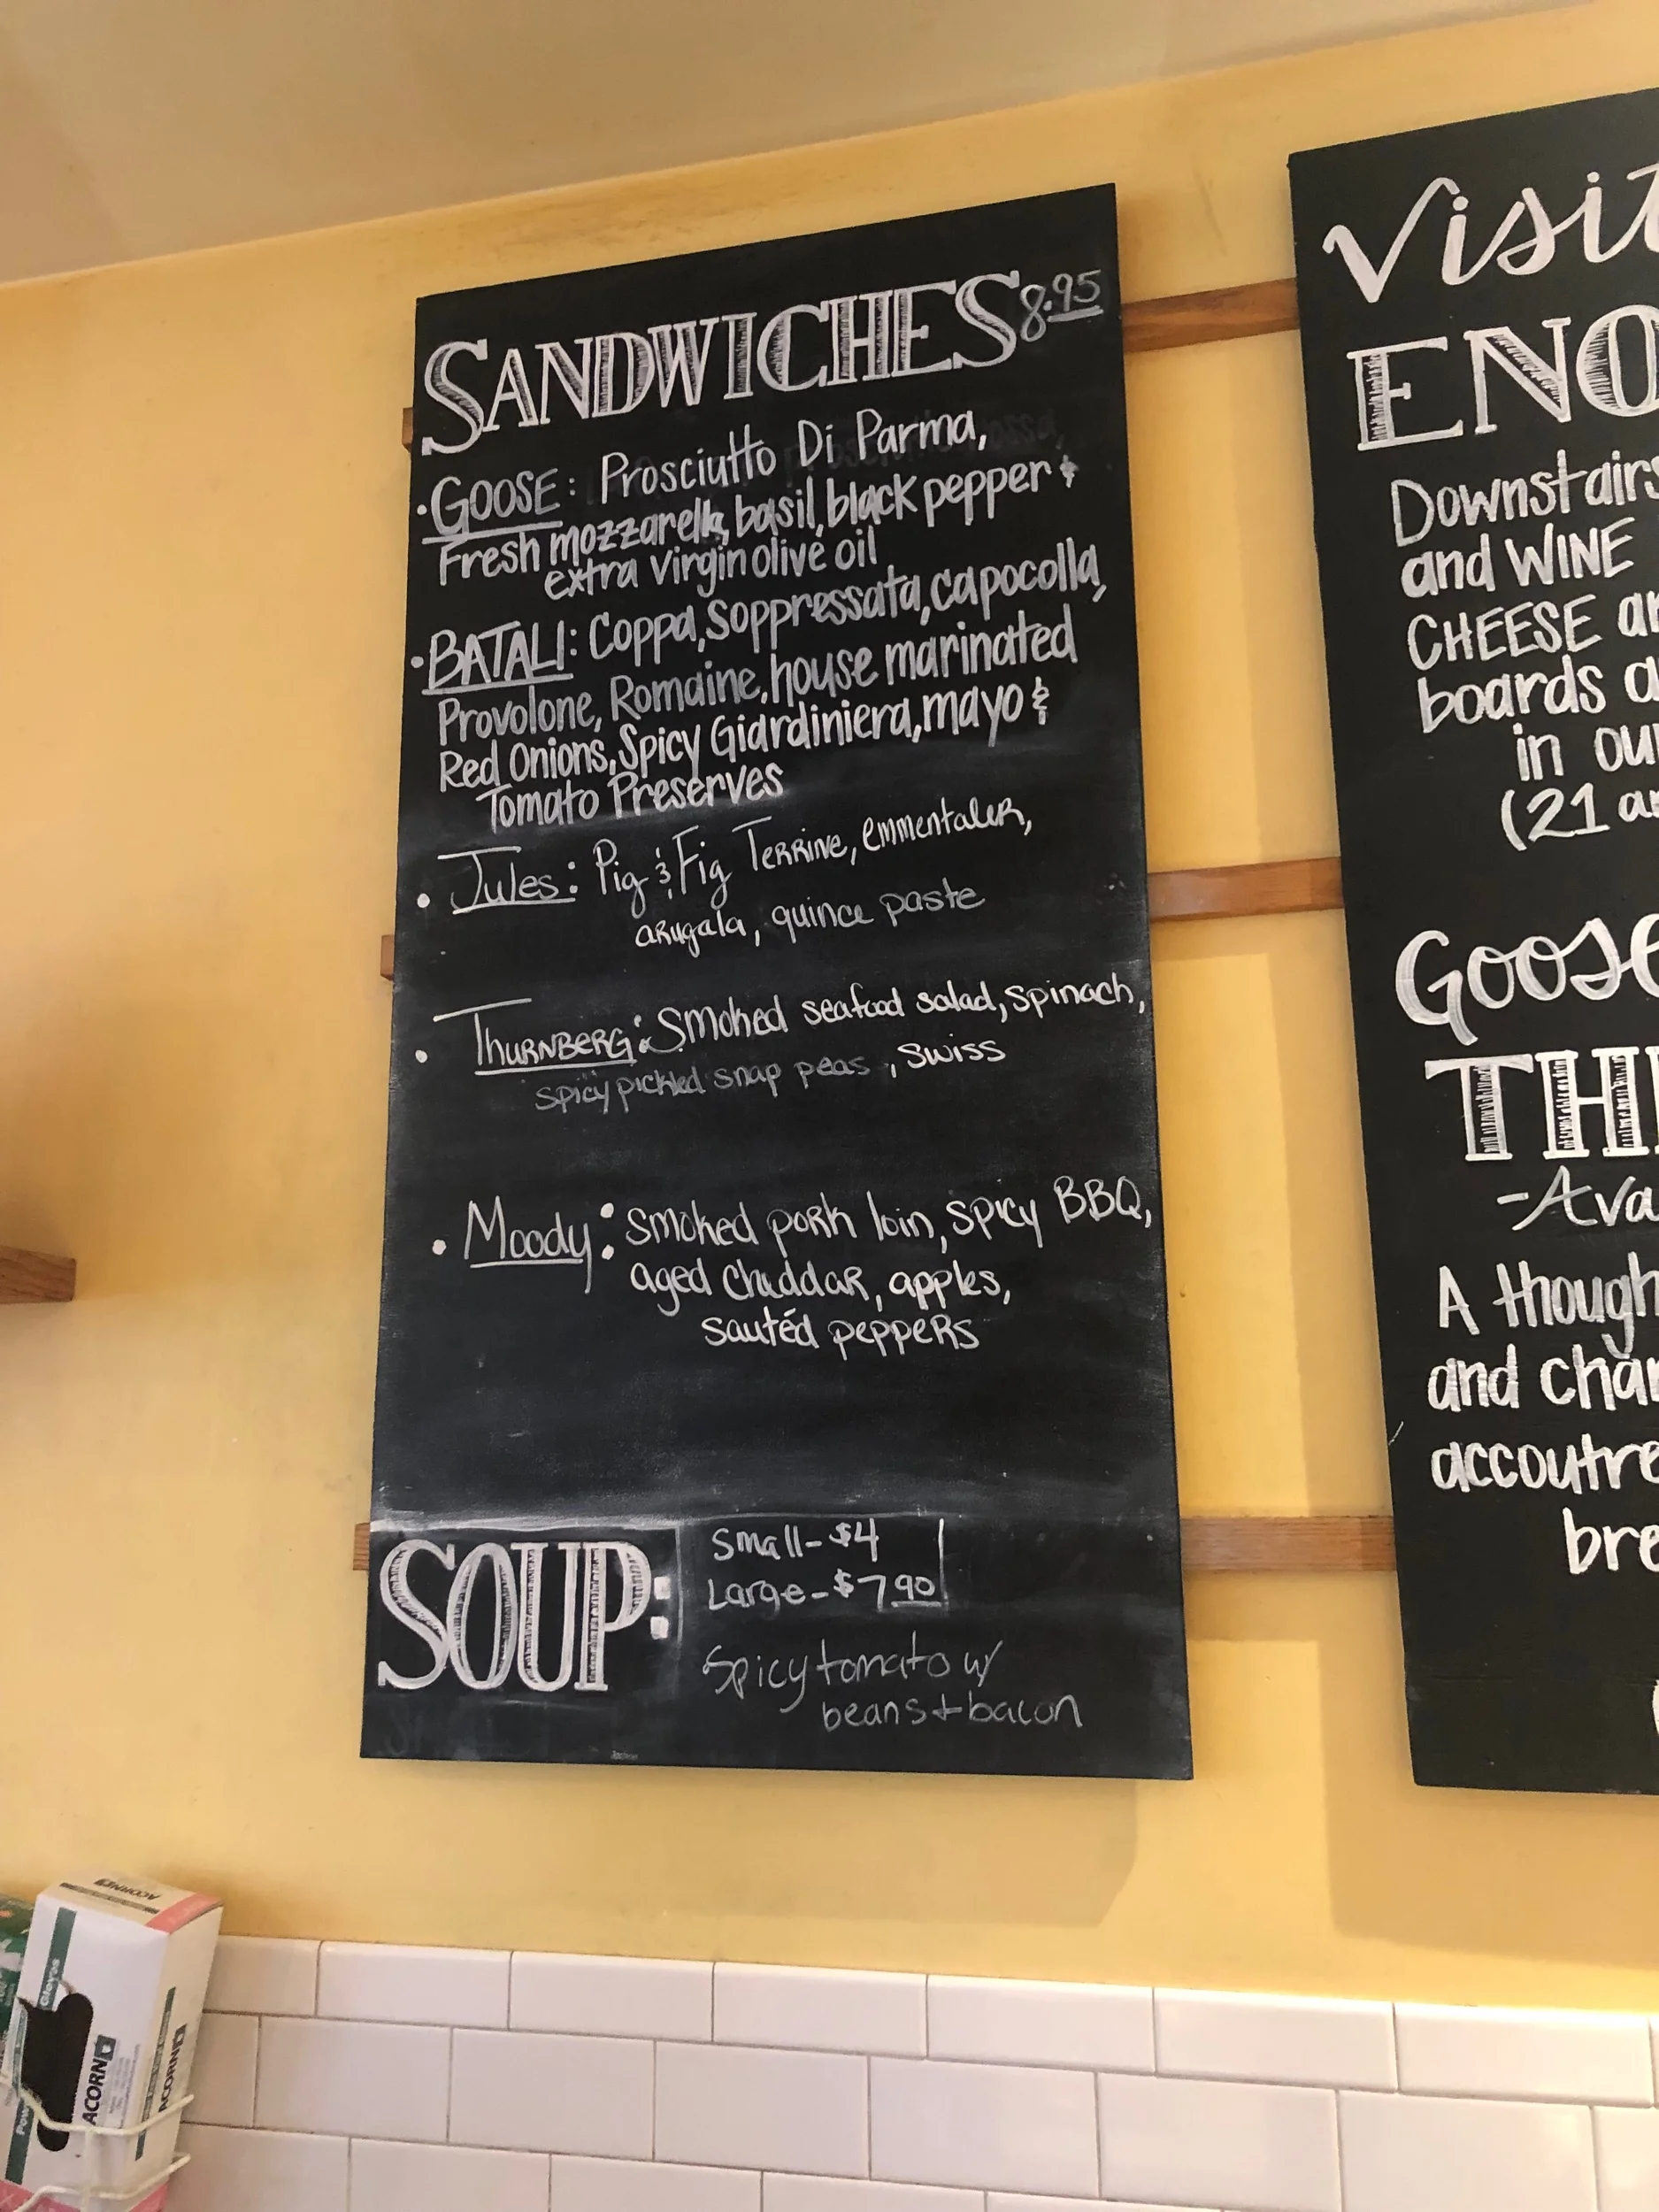 SANDWICHES 8.95
• GOOSE: Prosciutto Di Parma,
Fresh mozzarella, basil, black pepper &
extra virgin olive oil
• BATALI: Coppa, Soppressata, capocolla,
Provolone, Romaine, house marinated
Red Onions, Spicy Giardiniera, mayo &
Tomato Preserves
• Jules: Pig & Fig Terrine, emmentaler,
arugala, quince paste
• Thurnberg: Smoked seafood salad, spinach,
spicy pickled snap peas, swiss
• Moody: Smoked pork loin, spicy BBQ,
aged cheddar, apples,
sautéd peppers
SOUP:
Small - $4
Large - $7.90
Spicy tomato w/
beans + bacon
Visit
ENO
Downstairs
and WINE
CHEESE
boards
in
(21
Goose
-Ava
A though
and char
accoutre
bre
ACORN
ACORN
ACORN
Gloves